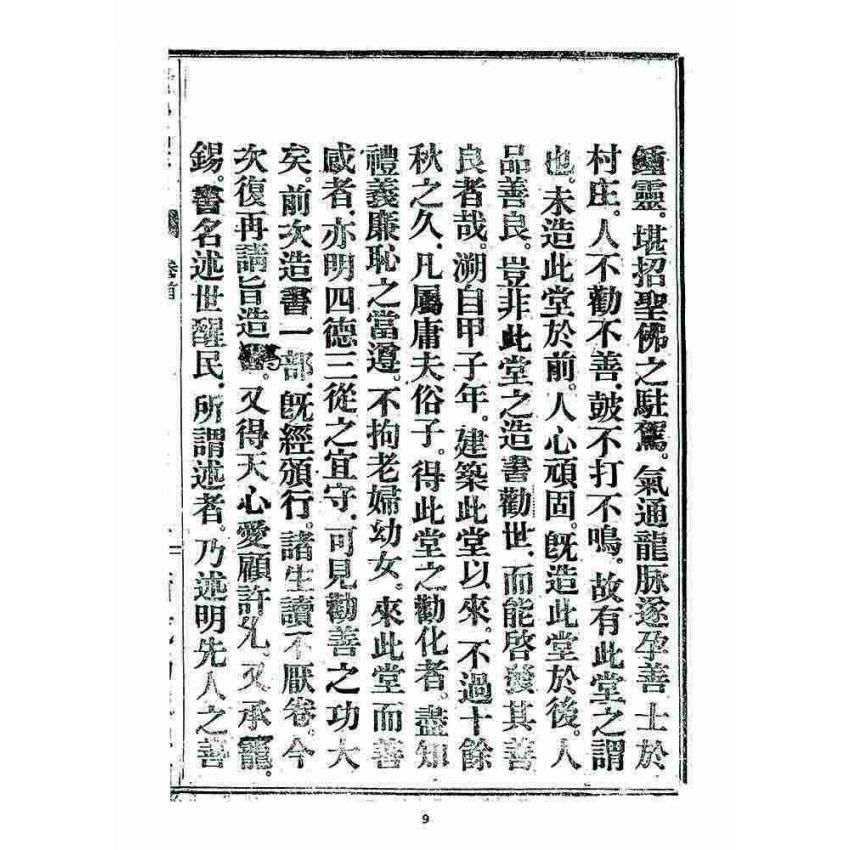 鍾靈。堪招聖佛之駐駕。氣通龍脉逐孕善士於
村庄。人不勸不善、皷不打不鳴。故有此堂之謂
也。未造此堂於前。人心頑固。旣造此堂於後。人
品善良。豈非此堂之造書勸世、而能啓發其善
良者哉。溯自甲子年。建築此堂以來。不過十餘
秋之久、凡屬庸夫俗子。得此堂之勸化者。盡知
禮義廉恥之當遵。不拘老婦幼女。來此堂而善
感者、亦明四德三從之宜守、可見勸善之功大
矣。前次造書一部、旣經頒行。諸生讀不厭卷。今
次復再請旨造。又得天心愛顧許允。又承寵
錫。書名述世醒民、所謂述者。乃述明先人之善
卷首
9